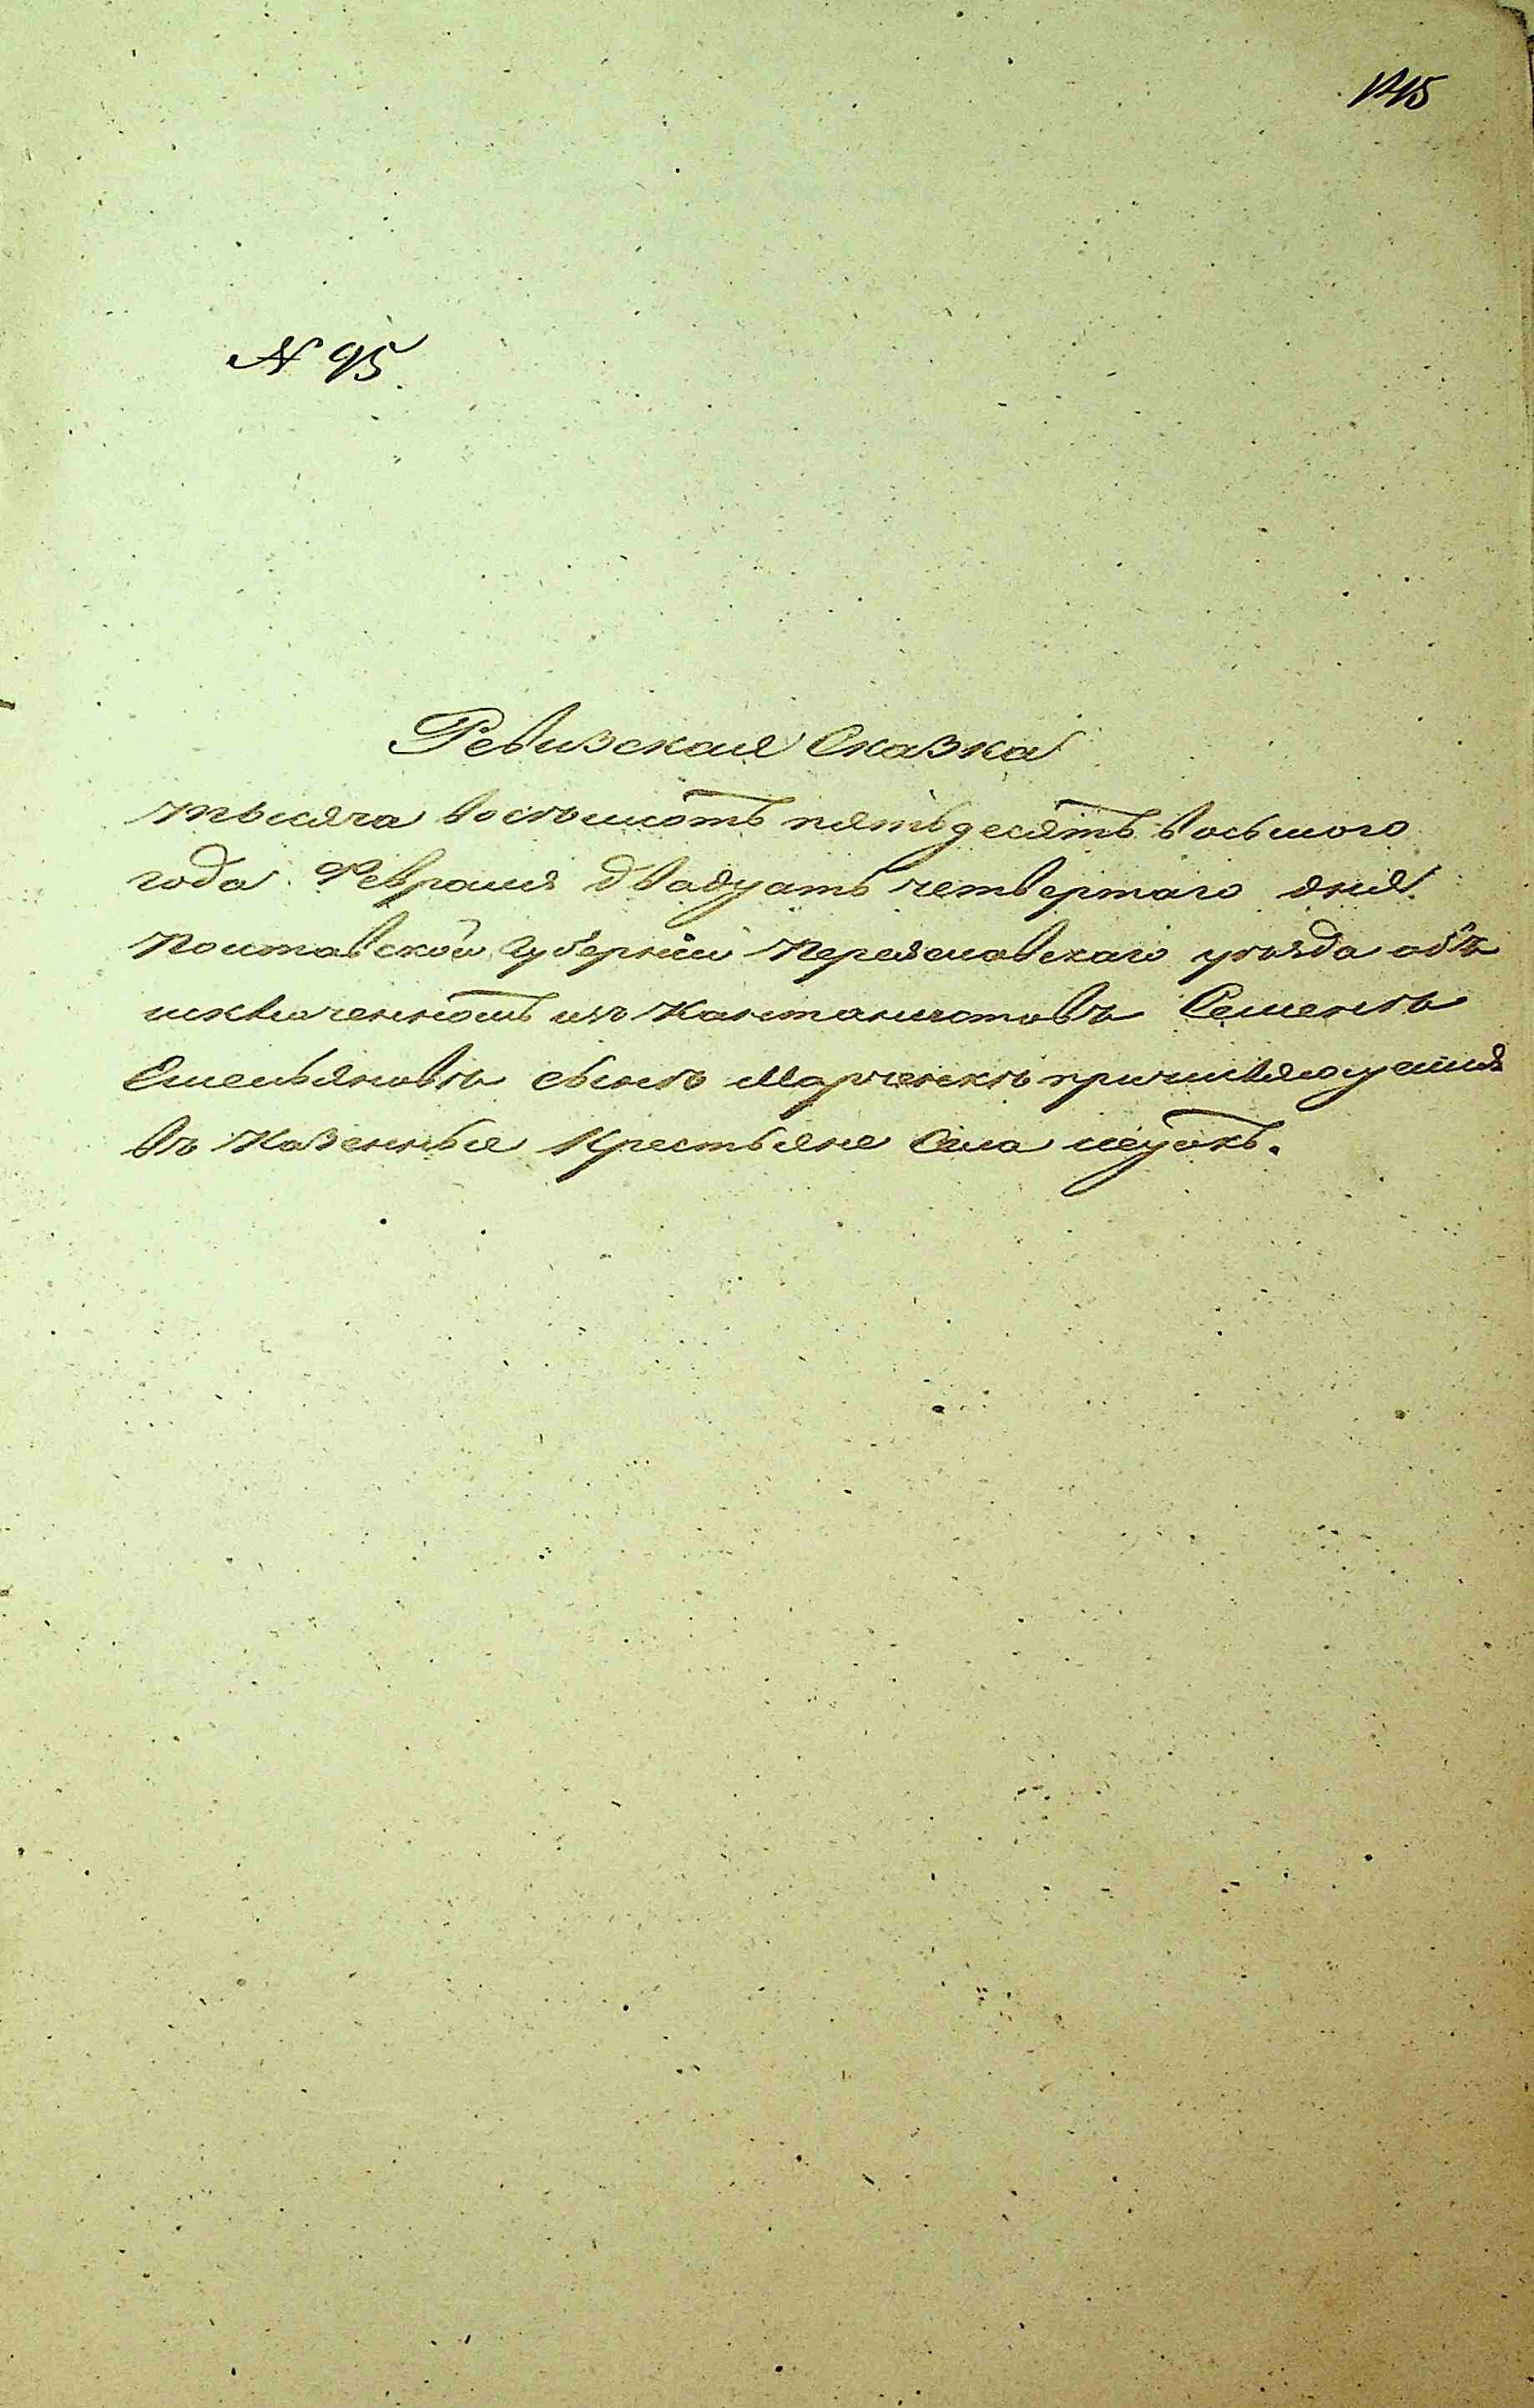 № 95.
Ревизская Сказка
тысяча восъмсотъ пятьдесятъ восьмого
года. Февраля двадцать четвертаго дня.
Полтавской Губерніи Переяславскаго уѣзда объ
исключенномъ изъ Кантонистовъ Семенъ
Емельяновъ сынъ Марченкъ причисляющейся
въ Казенные Крестьяне Села